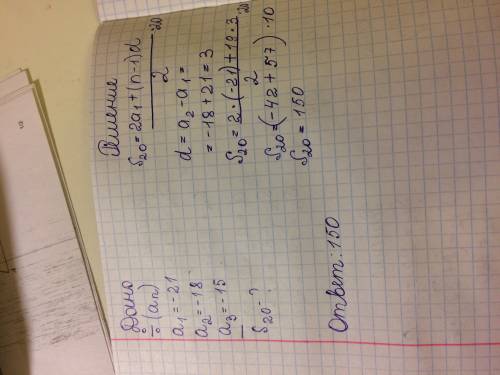 Дано
(an)
a₁ = -21
a₂ = -18
a₃ = -15
S₂₀ - ?
Решение
S₂₀ = 2a₁ + (n-1)d / 2 · 20
d = a₂ - a₁ =
= -18 + 21 = 3
S₂₀ = 2 · (-21) + 19 · 3 / 2 · 20
S₂₀ = (-42 + 57) · 10
S₂₀ = 150
Ответ: 150